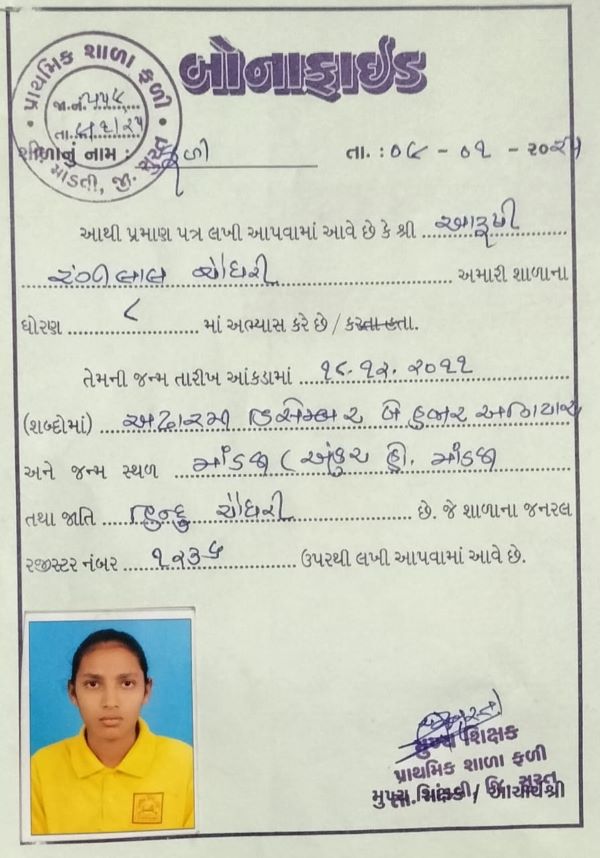 બોનાફાઇડ
પ્રાથમિક શાળા ફળી
જા.નં.
તા.
માંડવી, જી. સુરત
શાળાનું નામ : ફળી તા. : ૦૯ - ૦૧ - ૨૦૨૫
આથી પ્રમાણ પત્ર લખી આપવામાં આવે છે કે શ્રી આરૂષી
ચૌધરી અમારી શાળાના
ધોરણ ૮ માં અભ્યાસ કરે છે / કરતા હતા.
તેમની જન્મ તારીખ આંકડામાં ૧૮.૧૨.૨૦૧૧
(શબ્દોમાં) અઢારમી ડિસેમ્બર બે હજાર અગિયાર
અને જન્મ સ્થળ માંડવી ( અંકુર હો. માંડવી
તથા જાતિ હિન્દુ ચૌધરી છે. જે શાળાના જનરલ
રજીસ્ટર નંબર ૧૨૩૬ ઉપરથી લખી આપવામાં આવે છે.
મુખ્ય શિક્ષક
પ્રાથમિક શાળા ફળી
મુખ્ય શિક્ષક / આચાર્યશ્રી